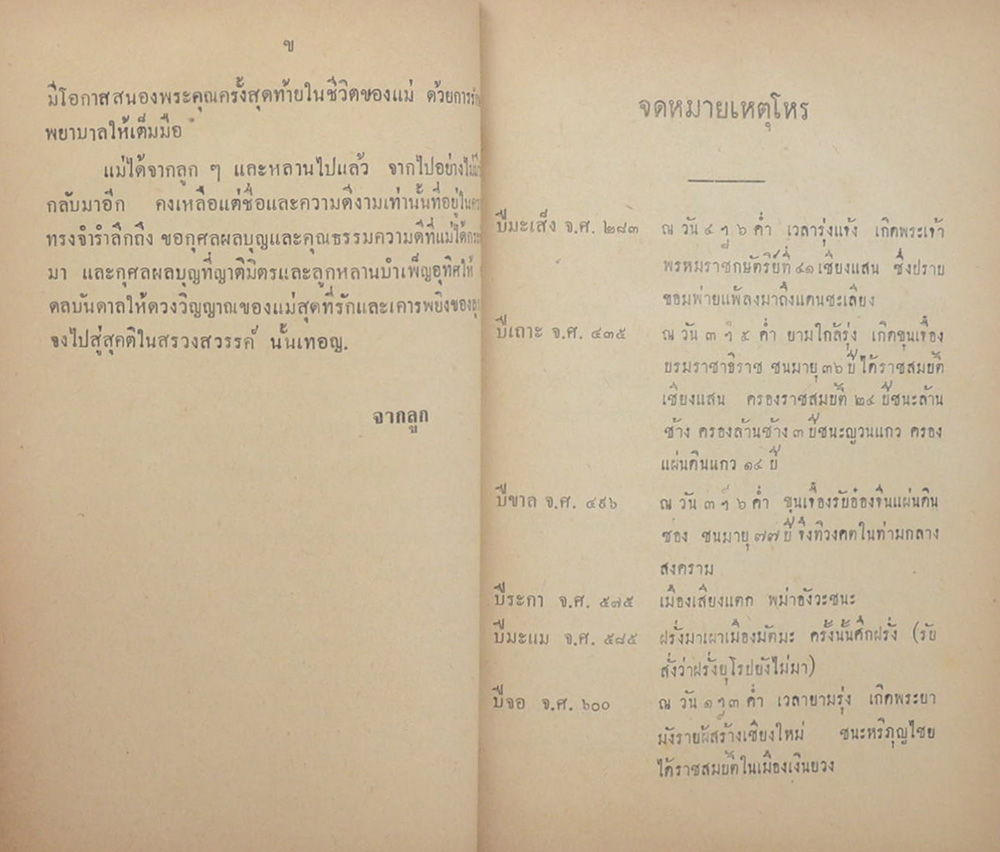 ข
มีโอกาสสนองพระคุณครั้งสุดท้ายในชีวิตของแม่ ด้วยการ
พยาบาลให้เต็มมือ
แม่ได้จากลูก ๆ และหลานไปแล้ว จากไปอย่าง
กลับมาอีก คงเหลือแต่ชื่อและความดีงามเท่านั้นที่อยู่ใน
ทรงจำรำลึกถึง ขอกุศลผลบุญและคุณธรรมความดีที่แม่ได้
มา และกุศลผลบุญที่ญาติมิตรและลูกหลานบำเพ็ญอุทิศให้
ดลบันดาลให้ดวงวิญญาณของแม่สุดที่รักและเคารพยิ่งของ
จงไปสู่สุคติในสรวงสวรรค์ นั้นเทอญ.
จากลูก
จดหมายเหตุโหร
ปีมะเส็ง จ.ศ. ๒๘๓ ณ วัน ๔ ฯ ๖ ค่ำ เวลารุ่งแจ้ง เกิดพระเจ้า
พรหมราชกษัตริย์ที่ ๔๑ เชียงแสน ซึ่งปราบ
ขอมพ่ายแพ้ลงมาถึงแดนชะเลียง
ปีเถาะ จ.ศ. ๔๓๕ ณ วัน ๓ ฯ ๕ ค่ำ ยามใกล้รุ่ง เกิดขุนเจื๋อง
บรมราชาธิราช ชนมายุ ๓๖ ปี ได้ราชสมบัติ
เชียงแสน ครองราชสมบัติ ๒๔ ปีชนะล้าน
ช้าง ครองล้านช้าง ๓ ปีชนะญวนแกว ครอง
แผ่นดินแกว ๑๔ ปี
ปีขาล จ.ศ. ๔๙๖ ณ วัน ๓ ฯ ๖ ค่ำ ขุนเจื๋องรับอ๋องจีนแผ่นดิน
ซ้อง ชนมายุ ๗๗ ปี จึงทิวงคตในท่ามกลาง
สงคราม
ปีระกา จ.ศ. ๕๗๕ เมืองเสียงแตก พม่าอังวะชนะ
ปีมะแม จ.ศ. ๕๘๕ ฝรั่งมาเผาเมืองมัตมะ ครั้งนั้นศึกฝรั่ง (รับ
สั่งว่าฝรั่งยุโรปยังไม่มา)
ปีจอ จ.ศ. ๖๐๐ ณ วัน ๑ ฯ ๓ ค่ำ เวลายามรุ่ง เกิดพระยา
มังรายผู้สร้างเชียงใหม่ ชนะหริภุญไชย
ได้ราชสมบัติในเมืองเงินยวง